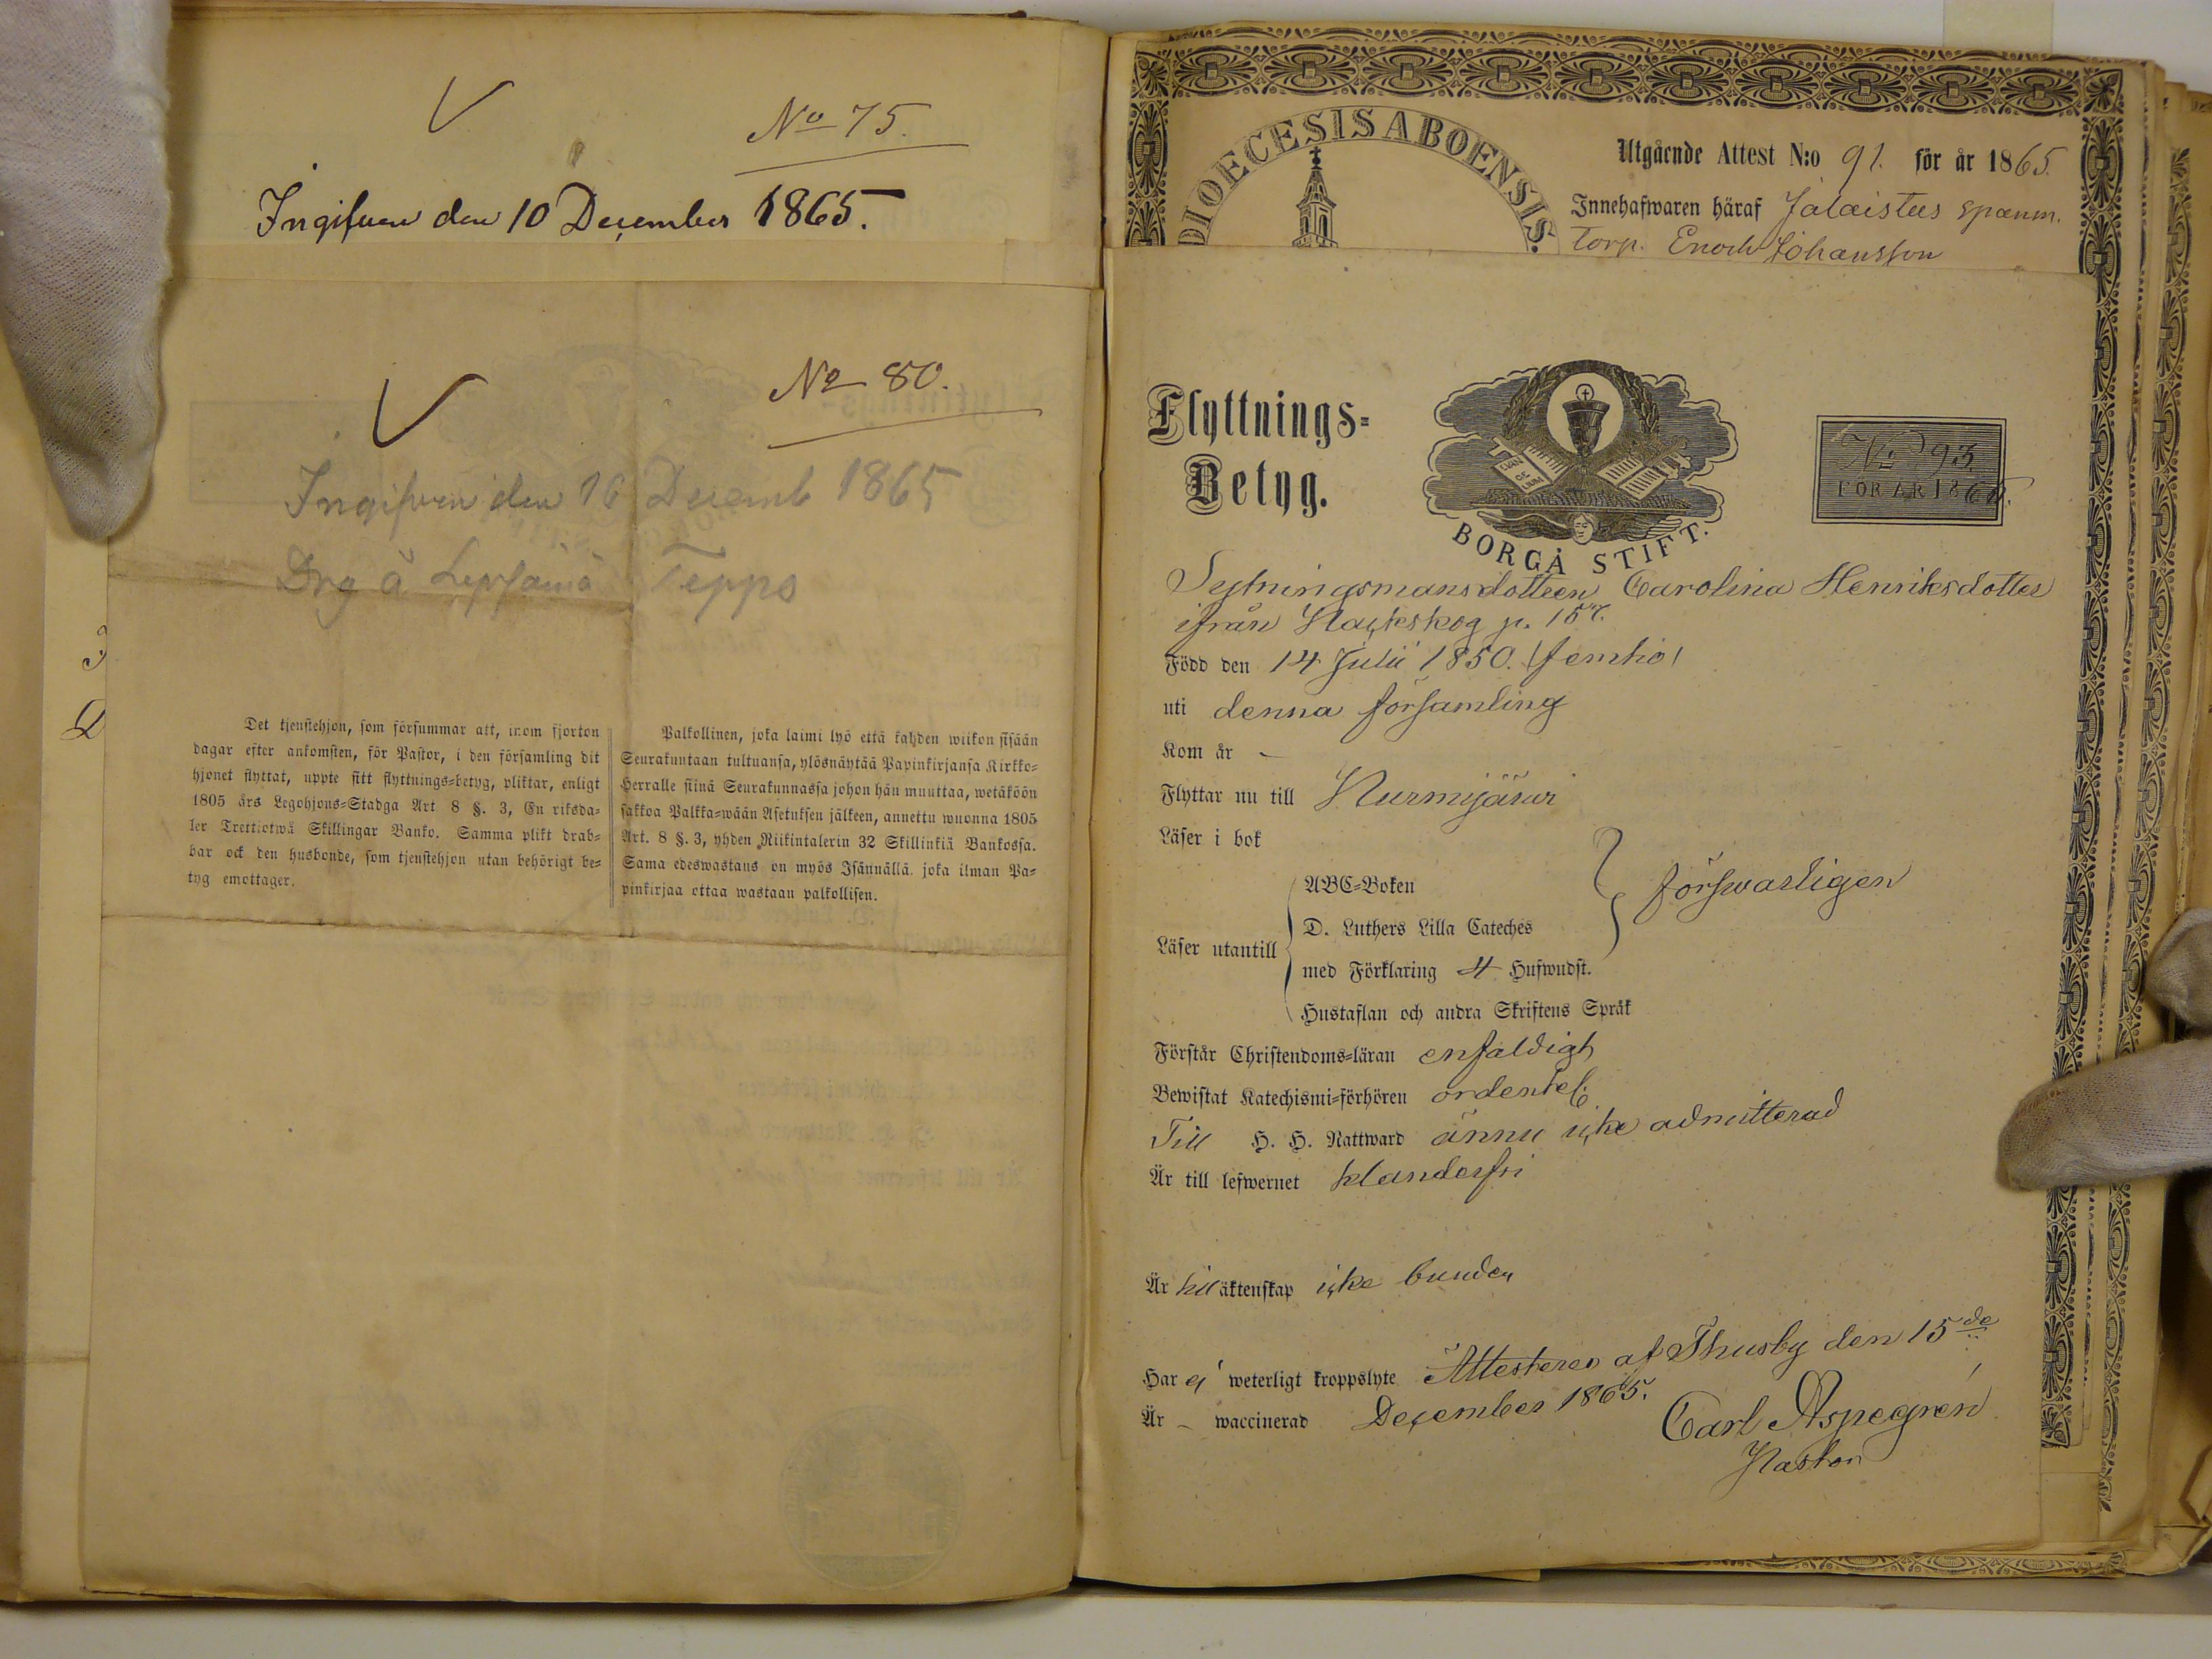 No 75.
Ingifven den 10 December 1865.
No 80.
Ingifven den 16 Decemb 1865
Drg å Lepsämä Teppo
Det tjenstehjon, som försummar att, inom fjorton
dagar efter ankomsten, för Pastor, i den församling dit
hjonet flyttat, uppte sitt flyttnings-betyg, pliktar, enligt
1805 års Legohjons-Stadga Art 8 §. 3, En riksda-
ler Trettiotwå Skillingar Banko. Samma plikt drab-
bar ock den husbonde, som tjenstehjon utan behörigt be-
tyg emottager.
Palkollinen, joka laimi lyö että kahden wiikon sisään
Seurakuntaan tultuansa, ylösnäytää Papinkirjansa Kirkko-
Herralle siinä Seurakunnassa johon hän muuttaa, wetäköön
sakkoa Palkka-wään Asetuksen jälkeen, annettu wuonna 1805
Art. 8 §. 3, yhden Riikintalerin 32 Skillinkiä Bankossa.
Sama edeswastaus on myös Isännällä. joka ilman Pa-
pinkirjaa ottaa wastaan palkollisen.
DIOECESIS ABOENSIS.
Utgående Attest N:o 91. för år 1865.
Innehafwaren häraf Jalaistus spanm.
Torp. Enoch Johansson
Flyttnings-
Betyg.
EVAN
GE
LIUM
BORGÅ STIFT.
No 93
FÖR ÅR 1865.
Sytningsmansdottren Carolina Henriksdotter
ifrån Klackskog p. 157.
Född den 14 Julii 1850. (femtio)
uti denna församling
Kom år –
Flyttar nu till Nurmijärvi
Läser i bok
Läser utantill
ABC-Boken
D. Luthers Lilla Cateches
med Förklaring 4 Hufwudst.
Hustaflan och andra Skriftens Språk
försvarligen
Förstår Christendoms-läran enfaldigt
Bewistat Katechismi-förhören ordentel.
Till H. H. Nattward ännu icke admitterad
Är till lefwernet klanderfri
Är till äktenskap icke bunden
Har ej weterligt kroppslyte Attesteres af Thusby den 15de
Är – waccinerad December 1865.
Carl Aspegrén
Pastor